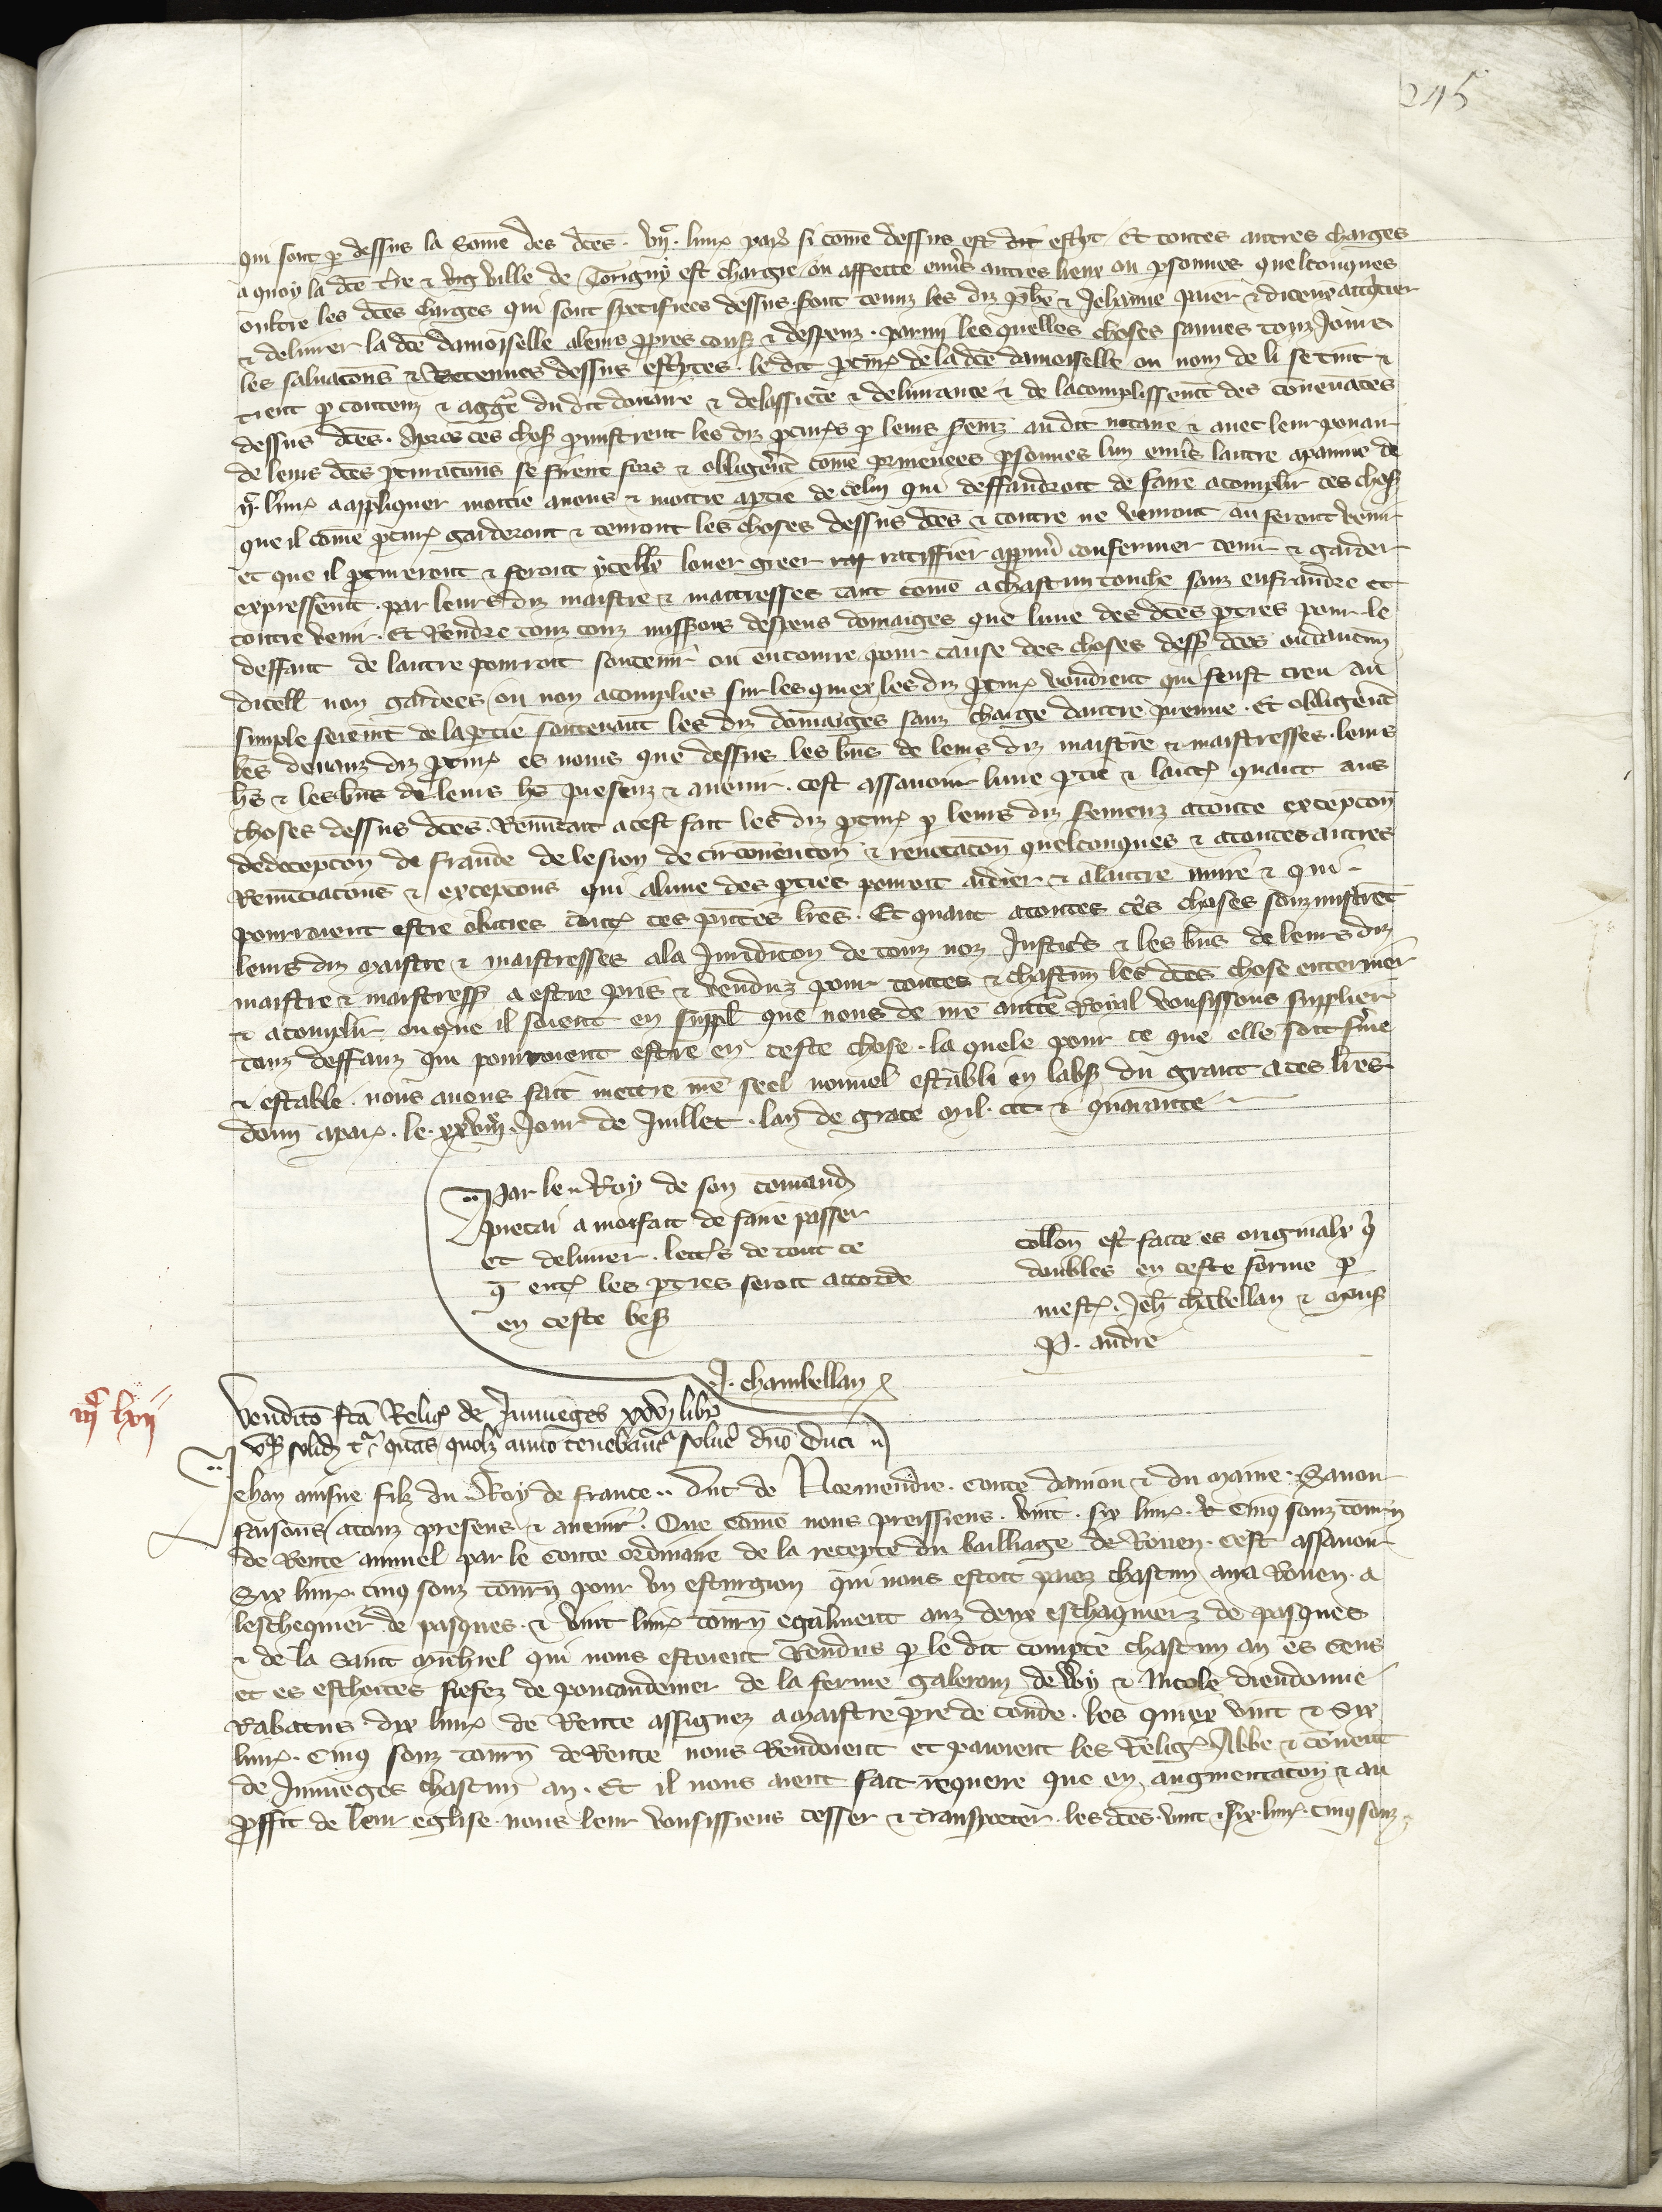 245
qui sont p dessus la some des dces . vijc . livr par si come dessus est dit escript Et toutes autres charges
a quoy la dce tre & ville de Torigny est chargie ou affette envs autres lieux ou psonnes quelconques
oultre les dces charges qui sont specifiees dessus . sont tenuz les diz & Jehanne paier & diceux acqtier
& delivrer la dce damoiselle a leurs ppres couz & despenz . parmi les quelles choses sauves touz jours
les salvacons & Retenues dessus escriptes . le dit pcur de la dce damoiselle ou nom de li se tint &
tient p contenz & du dit douaire & delassiete & delivrance & de lacomplissemt des convenaces
dessus dces . Apres ces choses pmistrent les diz pcurs p leurs sermz au dit notaire & avec leur povair
de leurs dces pcuracons se firent fors & obligerent come privees psonnes lun envs lautre a paine de
livr a appliquer moitie a nous & moitie a ptie de celui qui deffaudroit de faire acomplir ces choses
que il come pcur garderont & tenront les choses dessus dces & contre ne venront ou feront venir
et que il pcureront & feront ycelles louer greer ratiffier appver confermer tenir & garder
expressemt . par leurs diz maistre & maitresses tant come a chascun touche sanz enfraindre et
contre venir . Et Rendre touz couz missions despens domaiges que lune des dces pties pour le
deffaut de lautre pourroit soutenir ou encourre pour cause des choses dess dces ou daucun
dicell non gardees ou non acomplies sur les quiex les diz pcur voudrent qui fust creu au
simple seremt de la ptie soutenant les diz domaiges sanz charge dautre preuve . Et obligerent
les devanz diz pcur es noms que dessus les biens de leurs diz maistre & maistresses . leurs
hrs & les biens de leurs hrs presenz & avenir . cest assavoir lune ptie & lautre quant aus
choses dessus dces . Renuncant a cest fait les diz pcur p leurs diz seremenz a toute excepcon
de decepcon de fraude de lesion de circonvencon & renovacon quelconques & a toutes autres
Renunciacons & excepcons qui a lune des pties pourroit aidier & a lautre nuire & qui
pourroient estre obicies contre ces pntes lres . Et quant a toutes ces choses soumistrent
leurs diz maistre & maistresses a la Juridicon de touz noz Justices & les biens de leurs diz
maistre & maistress a estre pris & venduz pour toutes & chascun les dces chose enteriner
& acomplir ou que il soient en suppl que nous de nre auctte Royal vousissons supplier
touz deffauz qui pourroient estre en ceste chose . la quele pour ce que elle soit ferme
& estable . nous avons fait mettre nre seel nouvel establi en labs du grant a ces lres
donn a par . le . xxviije . Jour de Juillet . lan de grace mil . ccc & quarante
Par le Roy de son comand
pieca a moi fait de faire passer
et delivrer . lettres de tout ce
q entre les pties seroit accorde
en ceste bes
J. chambellan
collon est faite es originalx q
doubles en ceste forme p
mestre . Jeh chabellan & mons
P. andre
iijc lxvij
Vendito fca Relig de Jumieges xxvj libr
vq solid t quas quolz anno tenebantr solve dno Duci
Jehan ainsne filz du Roy de france .. Duc de Normendie . Conte danjou & du maine . Savoir
faisons a touz presens & avenir . Que come nous preissiens . vint . six livr . & Cinq souz tourn
de Rente annuel par le conte ordinaire de la recepte du bailliage de Rouen . Cest assavoir
Six livr . cinq souz tourn pour un esturgion qui nous estoit paiez chascun an a Rouen . a
leschequier de pasques . & vint livr tourn egalment auz deux eschaquiers de pasques
& de la Saint Michiel qui nous estoient Rendus p le dit compte chascun an es Cens
et es eschoites fiefez de pontaudemer de la ferme galeran de & Nicole dieudonne
Rabatus dix livr de Rente assignez a maistre pre de conde . les quiex vint & Six
livr . Cinq souz tourn de Rente nous Rendoient et paioient les Relig Abbe & covent
de Jumieges chascun an . Et il nous aient fait requerre que en augmentacon & au
pffit de leur eglise nous leur vousissiens cesser & transporter . les dces . vint & six . livr . cinq souz